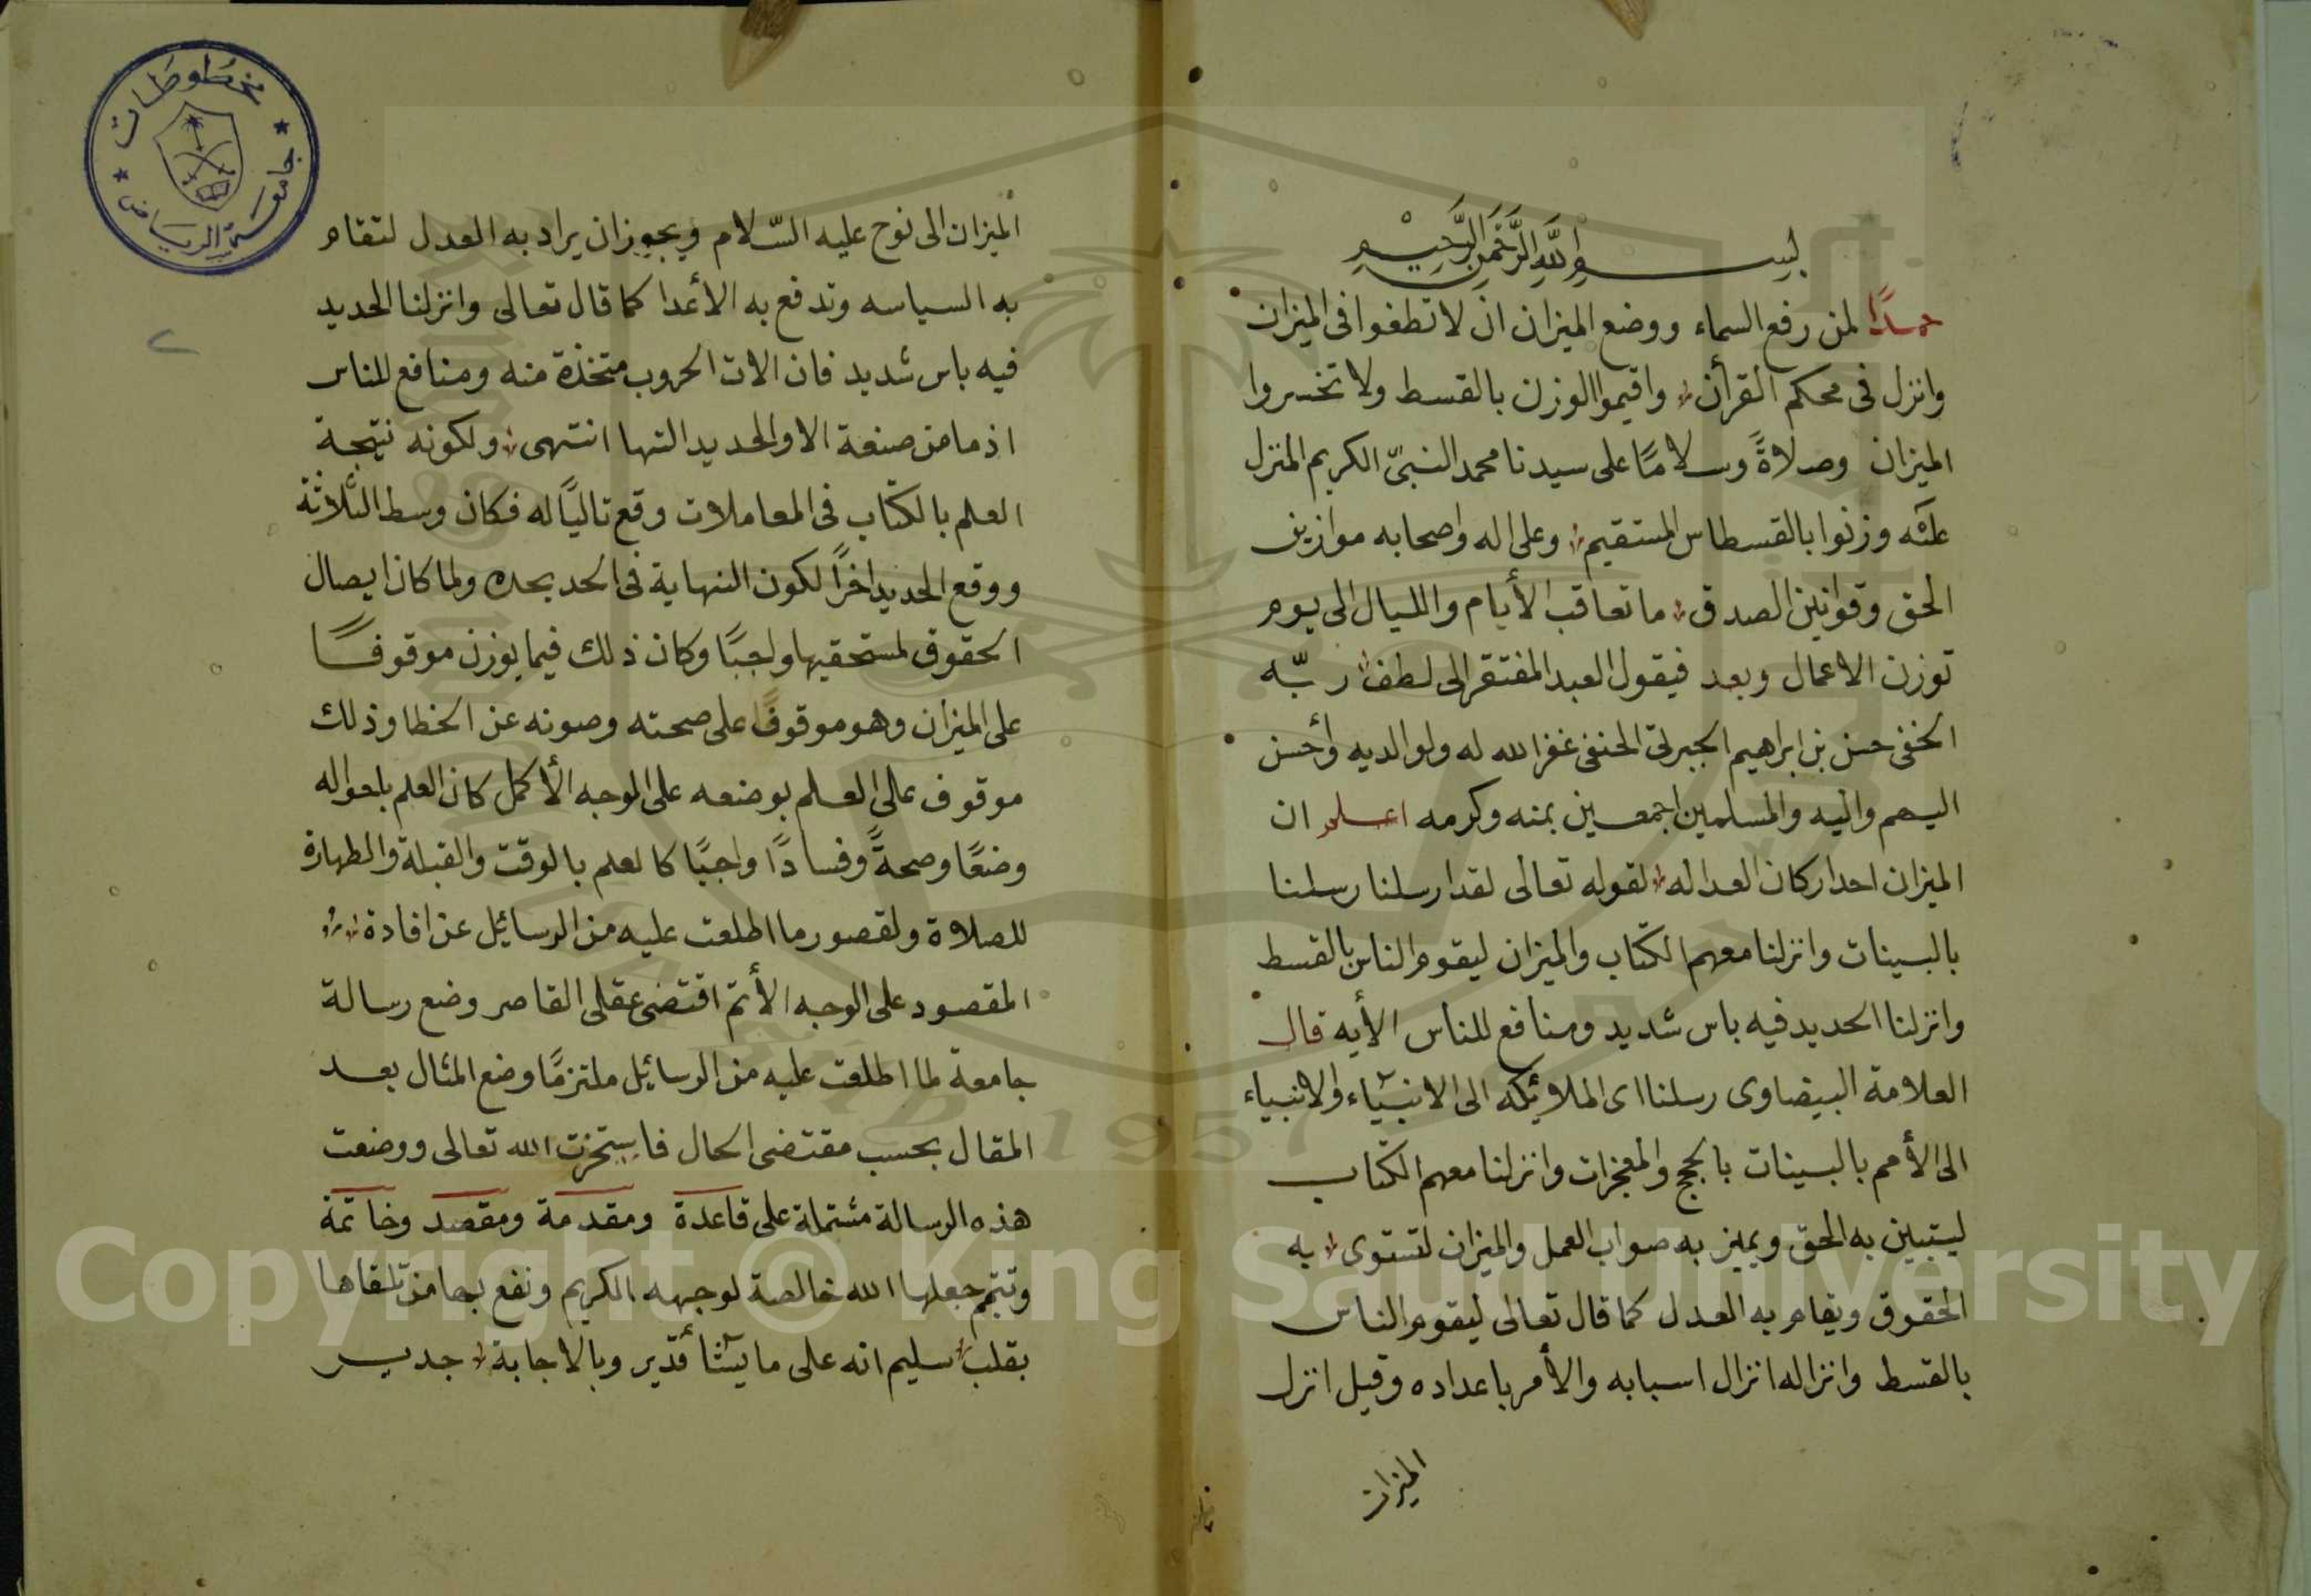 بسم الله الرحمن الرحيم
حمدًا لمن رفع السماء ووضع الميزان ان لا تطغوا فى الميزان
وانزل فى محكم القرأن واقيموا الوزن بالقسط ولا تخسروا
الميزان وصلاةً وسلامًا على سيدنا محمد النبىّ الكريم المنزل
عليه وزنوا بالقسطاس المستقيم وعلى اله واصحابه موازين
الحق وقوانين الصدق ما تعاقب الأيام والليال الى يوم
توزن الاعمال وبعد فيقول العبد المفتقر الى لطف ربّه
الخفى حسن بن ابراهيم الجبرتى الحنفى غفر الله له ولوالديه وأحسن
اليهم واليه والمسلمين اجمعين بمنه وكرمه اعلم ان
الميزان احد اركان العداله لقوله تعالى لقد ارسلنا رسلنا
بالبينات وانزلنا معهم الكتاب والميزان ليقوم الناس بالقسط
وانزلنا الحديد فيه باس شديد ومنافع للناس الأيه قال
العلامة البيضاوى رسلنا اى الملائكه الى الانبياء والانبياء
الى الأمم بالبينات بالحجج والمعجزات وانزلنا معهم الكتاب
ليتبين به الحق ويميز به صواب العمل والميزان لتستوى به
الحقوق ويقام به العدل كما قال تعالى ليقوم الناس
بالقسط وانزاله انزال اسبابه والأمر باعداده وقيل انزل
الميزان
الميزان الى نوح عليه السّلام ويجوز ان يراد به العدل لتقام
به السياسه وتدفع به الأعدا كما قال تعالى وانزلنا الحديد
فيه باس شديد فان الات الحروب متخذة منه ومنافع للناس
اذ ما من صنعة الا والحديد التها انتهى ولكونه نتيجة
العلم بالكتاب فى المعاملات وقع تاليًا له فكان وسط الثلاثة
ووقع الحديد اخرًا لكون النهاية فى الحد بحده ولما كان ايصال
الحقوق لمستحقيها واجبًا وكان ذلك فيما يوزن موقوفًا
على الميزان وهو موقوفًا على صحته وصونه عن الخطا وذلك
موقوف على العلم بوضعه على الوجه الأكمل كان العلم باحواله
وضعًا وصحةً وفسادًا واجبًا كالعلم بالوقت والقبلة والطهارة
للصلاة ولقصور ما اطلعت عليه من الرسائل عن افادة
المقصود على الوجه الأتم اقتضى عقلى القاصر وضع رسالة
جامعة لما اطلعت عليه من الرسائل ملتزمًا وضع المثال بعد
المقال بحسب مقتضى الحال فاستخرت الله تعالى ووضعت
هذه الرسالة مشتملة على قاعدة ومقدمة ومقصد وخاتمة
وتتم جعلها الله خالصة لوجهه الكريم ونفع بها من تلقاها
بقلب سليم انه على ما يشأ قدير وبالاجابة جدير
مخطوطات
جامعة الرياض
٢
1957
Copyright © King Saud University